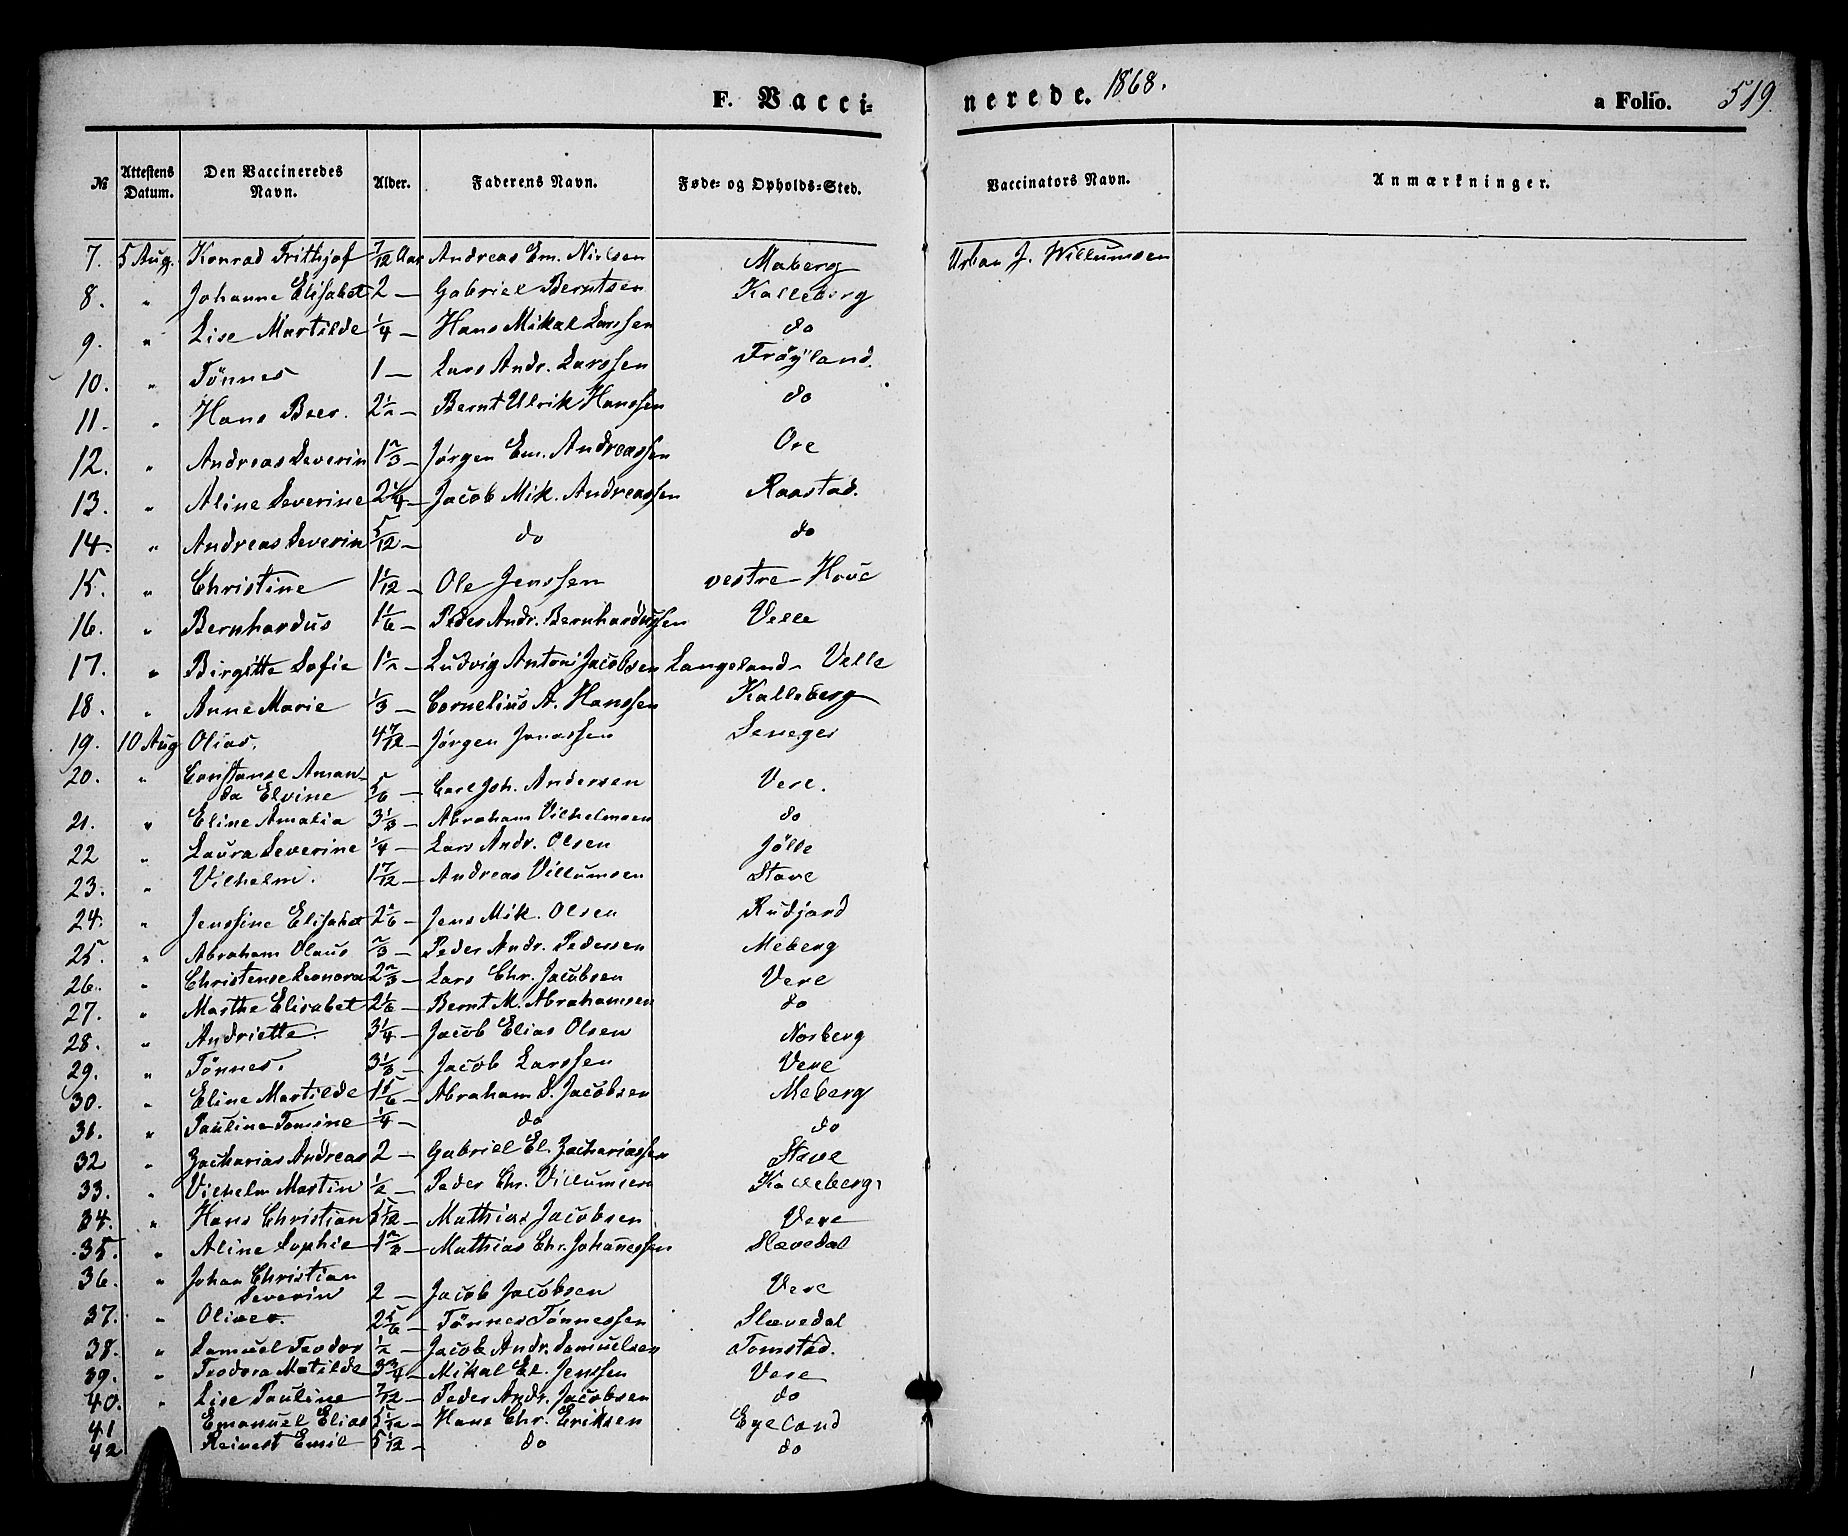 F. Vacci= nerede. 1868. a Folio. 519
№ Attestens Datum. Den Vaccineredes Navn. Alder. Faderens Navn. Føde- og Opholds-Sted. Vaccinators Navn. Anmærkninger.
7. 5 Aug. Konrad Frithjof 7/12 Aar Andreas Em. Nielsen Maberg Urban J. Willumsen
8. " Johanne Elisabet 2 — Gabriel Berntsen Kalleberg
9. " Lise Martilde 1/4 — Hans Mikal Larssen do
10. " Tönnes 1 — Lars Andr. Larssen Fröyland.
11. " Hans Beer. 2 1/2 — Bernt Ulrik Hanssen do
12. " Andreas Severin 1 2/3 — Jørgen Em. Andreassen Ore
13. " Aline Severine 2 1/4 — Jacob Mik. Andreassen Raastad.
14. " Andreas Severin 5/12 — do do
15. " Christine 1 1/12 — Ole Jenssen vestre-Hove
16. " Bernhardus 1 1/6 — Peder Andr. Bernhardussen Velle
17. " Birgitte Sofie 1 1/2 — Ludvig Anton Jacobsen Langeland-Velle
18. " Anne Marie 1/3 — Cornelius A. Hanssen Kalleberg
19. 10 Aug Olias. 4 7/12 — Jørgen Jonassen
20. " Constanse Aman-
da Elvine 5/6 — Carl Joh. Andersen Vere.
21. " Eline Amalia 3 1/3 — Abraham Vilhelmsen do
22 " Laura Severine 1/4 — Lars Andr. Olsen Jölle
23. " Vilhelm. 1 7/12 — Andreas Villumsen Stave
24. " Jenssine Elisabet 2 1/6 — Jens Mik. Olsen Rudjord
25. " Abraham Olaus 2/3 — Peder Andr. Pedersen Meberg
26. " Christense Leonora 2 2/3 — Lars Chr. Jacobsen Vere
27. " Marthe Elisabet 2 1/6 — Bernt M. Abrahamsen do
28. " Andriette. 3 1/4 — Jacob Elias Olsen Norberg
29. " Tönnes. 3 1/3 — Jacob Larssen Vere
30. " Eline Martilde 1 5/6 — Abraham S. Jacobsen Meberg
31. " Pauline Tomine 1/4 — do do
32 " Zacharias Andreas 2 — Gabriel El. Zachariassen Stave
33. " Vilhelm Martin 1/2 — Peder Chr. Villumsen Kalleberg.
34. " Hans Christian 5 5/12 — Mathias Jacobsen Vere
35. " Aline Sophie 1 2/3 — Mathias Chr. Johanessen Slævedal
36. " Johan Christian
Severin 2 — Jacob Jacobsen Vere
37. " Oliver. 2 5/6 — Tönnes Tönnessen Slævedal
38. " Samuel Teodor 1/2 — Jacob Andr. Samuelsen Tomstad.
39. " Teodora Matilde 3 3/4 — Mikal El. Jenssen Vere
40. " Lise Pauline 7/12 — Peder Andr. Jacobsen do
41 " Emanuel Elias 5 5/12 — Hans Chr. Eriksen Egeland
42 Reinert Emil 5/12 — do do